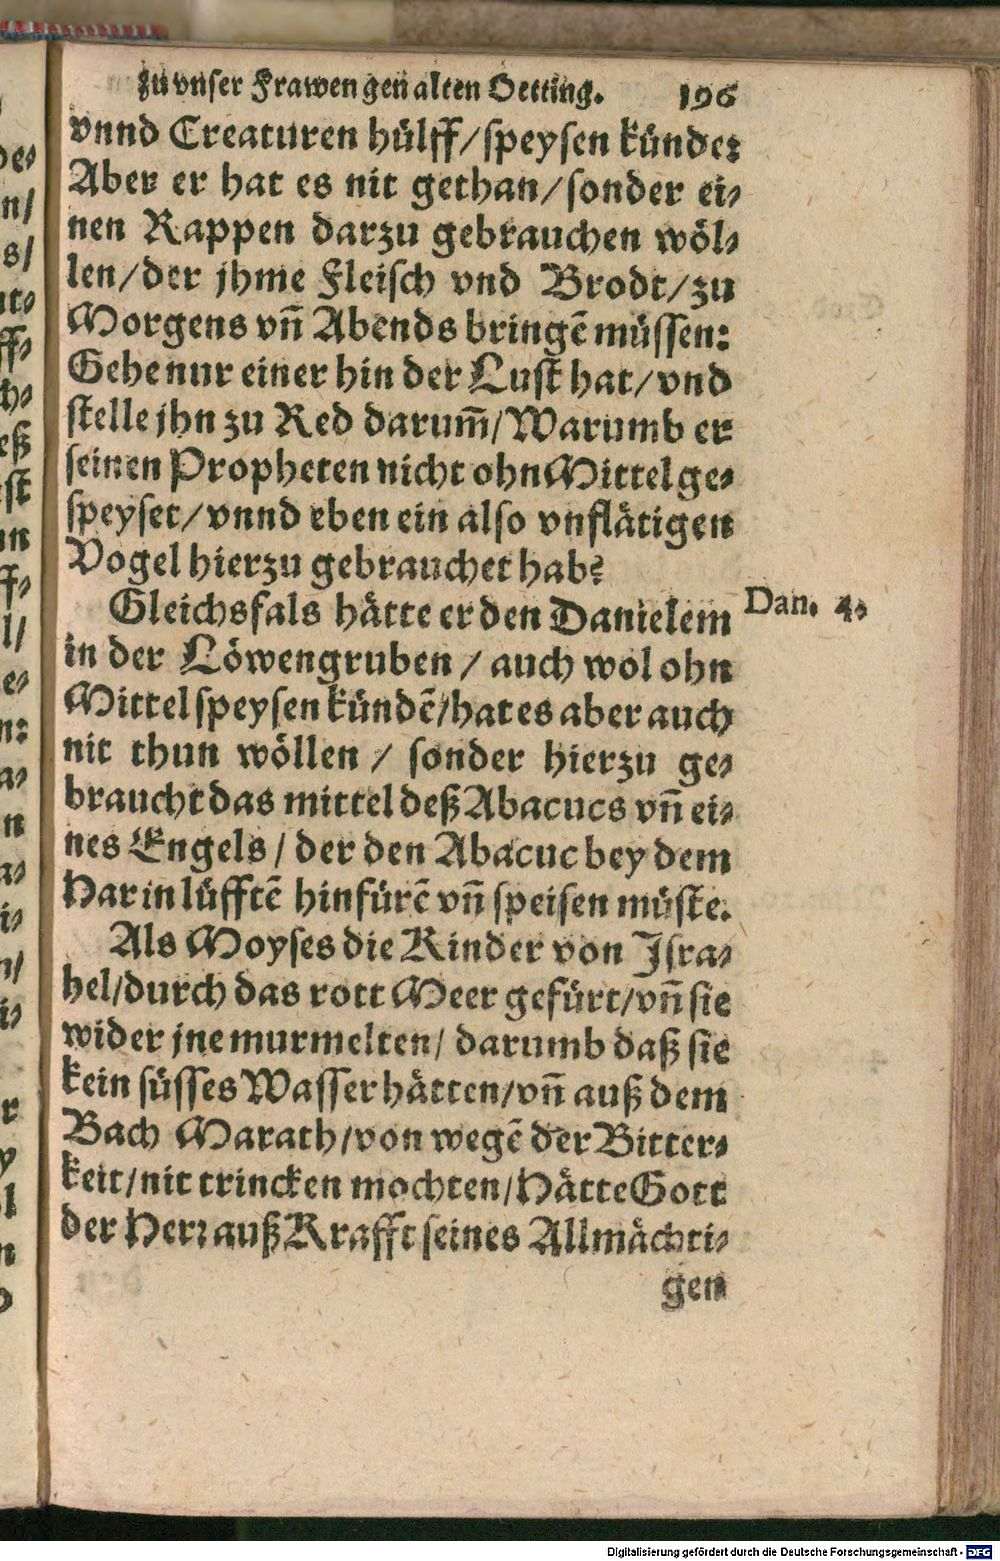 zu vnser Frawen gen alten Oetting. 196
vnnd Creaturen hülff/speysen künde:
Aber er hat es nit gethan/sonder ei-
nen Rappen darzu gebrauchen wöl-
len/der jhme Fleisch vnd Brodt/zu
Morgens vn̄ Abends bringē müssen:
Gehe nur einer hin der Lust hat/vnd
stelle jhn zu Red darum̄/Warumb er
seinen Propheten nicht ohn Mittel ge-
speyset/vnnd eben ein also vnflätigen
Vogel hierzu gebrauchet hab?
Gleichsfals hätte er den Danielem
Dan. 4.
in der Löwengruben / auch wol ohn
Mittel speysen kündē/hat es aber auch
nit thun wöllen / sonder hierzu ge-
braucht das mittel deß Abacucs vn̄ ei-
nes Engels / der den Abacuc bey dem
Har in lüfftē hinfürē vn̄ speisen müste.
Als Moyses die Kinder von Isra-
hel/durch das rott Meer gefürt/vn̄ sie
wider jne murmelten/ darumb daß sie
kein süsses Wasser hätten/vn̄ auß dem
Bach Marath/von wegē der Bitter-
keit/nit trincken mochten/Hätte Gott
der Herr auß Krafft seines Allmächti-
gen
Digitalisierung gefördert durch die Deutsche Forschungsgemeinschaft - DFG